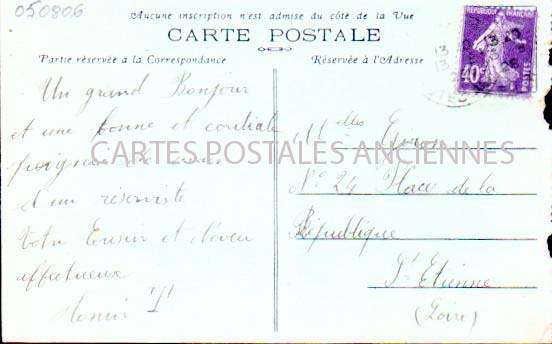 050806
Aucune inscription n'est admise du côté de la Vue
CARTE POSTALE
Partie réservée à la Correspondance
Réservée à l'Adresse
RÉPUBLIQUE FRANÇAISE
40c
POSTES
Un grand Bonjour
et une bonne et cordiale
poignée de
d'un réserviste
Votre Cousin et
affectueux
CARTES POSTALES ANCIENNES
Melles
No 24 Place de la
République
St Etienne
(Loire)